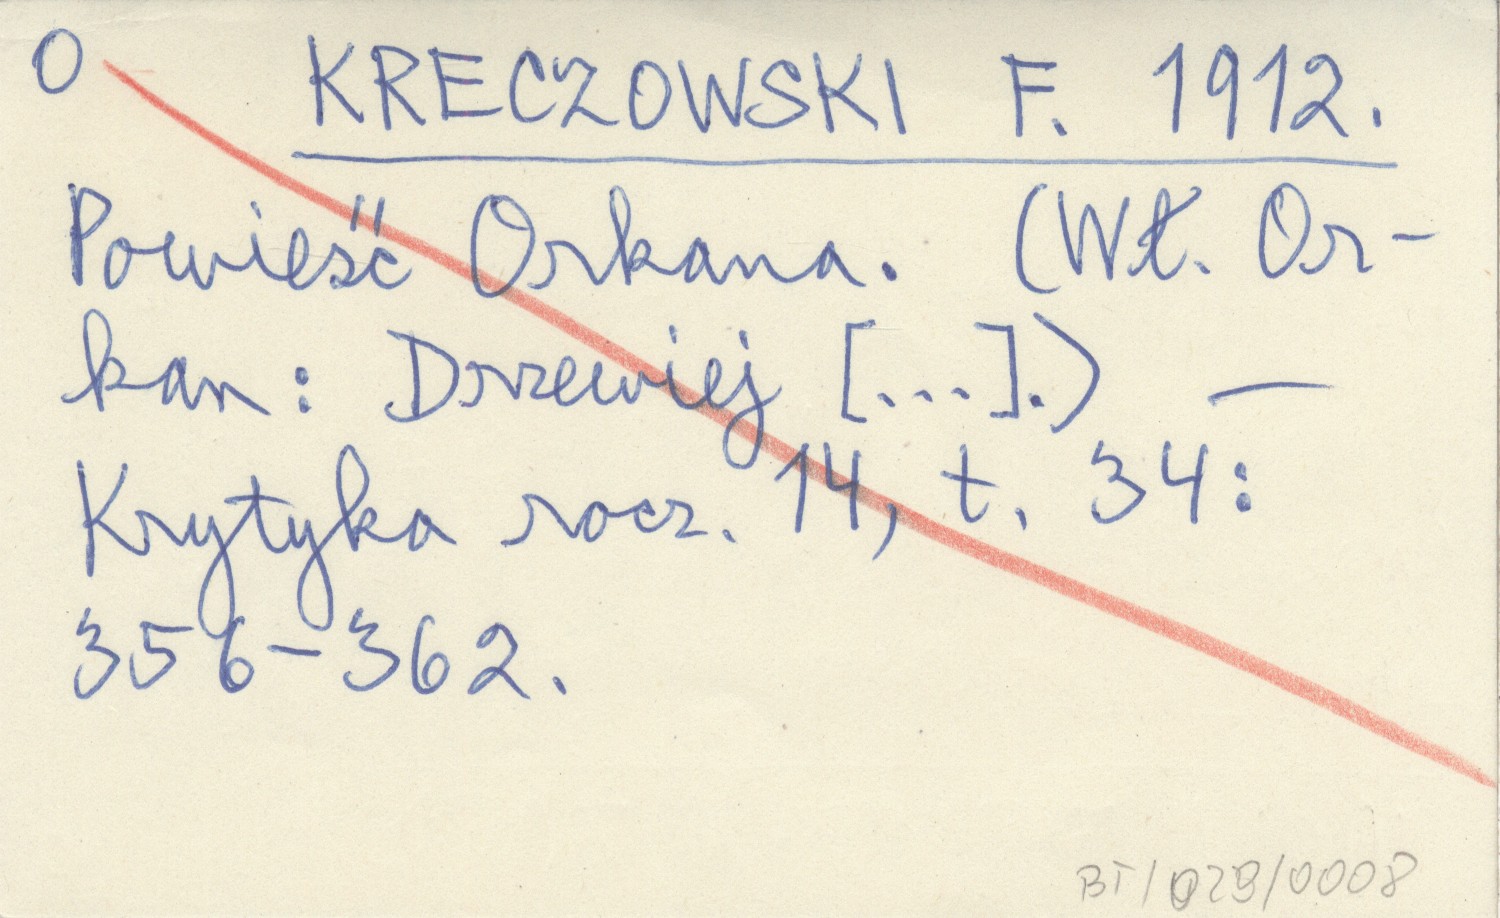 O KRECZOWSKI F. 1912.
Powieść Orkana. (Wł. Or-
kan: Drzewiej [...].) —
Krytyka rocz. 14, t. 34:
356-362.
BT/023/0008